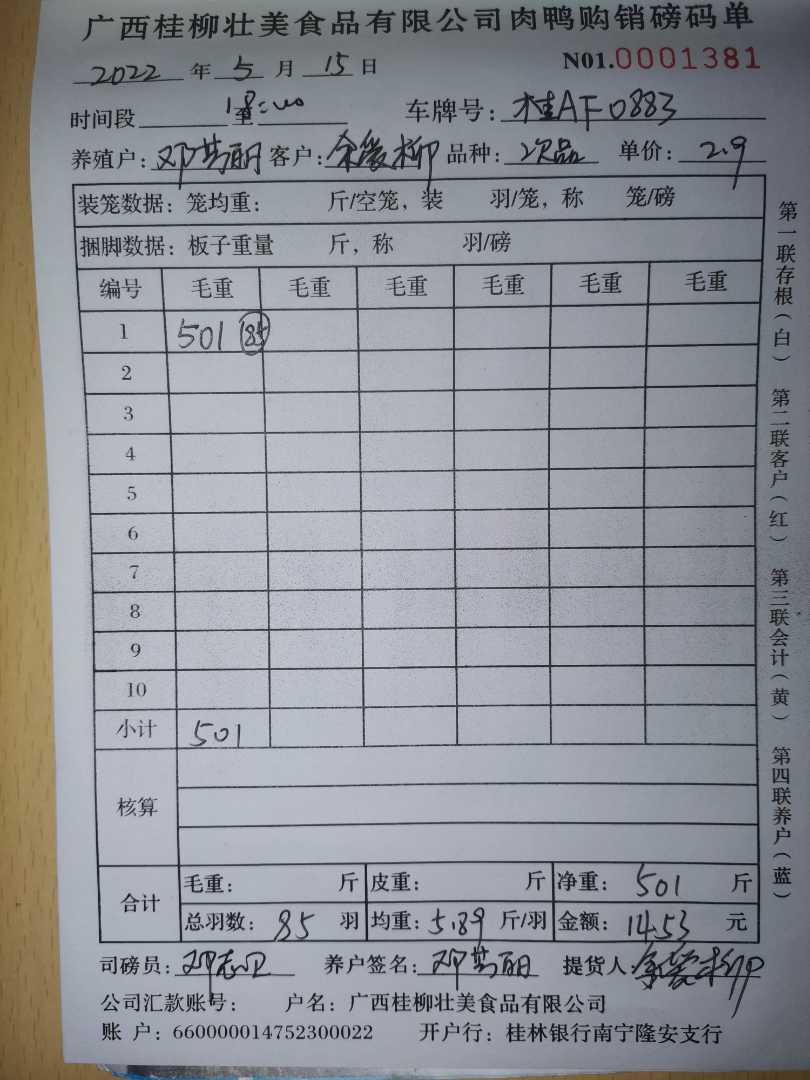 广西桂柳壮美食品有限公司肉鸭购销磅码单
2022 年 5 月 15 日 N01.0001381
时间段 18:00 至 车牌号: 桂AF0883
养殖户: 邓芳丽 客户: 余爱柳 品种: 次品 单价: 2.9
装笼数据: 笼均重: 斤/空笼, 装 羽/笼, 称 笼/磅
捆脚数据: 板子重量 斤, 称 羽/磅
编号 毛重 毛重 毛重 毛重 毛重 毛重
1 501 85
2
3
4
5
6
7
8
9
10
小计 501
核算
合计 毛重: 斤 皮重: 斤 净重: 501 斤
总羽数: 85 羽 均重: 5.89 斤/羽 金额: 1453 元
司磅员: 邓志卫 养户签名: 邓芳丽 提货人: 余爱柳
公司汇款账号: 户名: 广西桂柳壮美食品有限公司
账 户: 660000014752300022 开户行: 桂林银行南宁隆安支行
第一联存根(白) 第二联客户(红) 第三联会计(黄) 第四联养户(蓝)